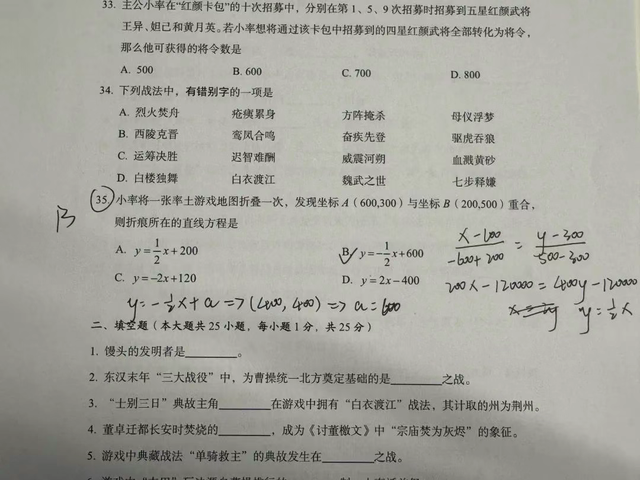 33. 主公小率在“红颜卡包”的十次招募中，分别在第 1、5、9 次招募时招募到五星红颜武将
王异、妲己和黄月英。若小率想将通过该卡包中招募到的四星红颜武将全部转化为将令，
那么他可获得的将令数是
A. 500 B. 600 C. 700 D. 800
34. 下列战法中，有错别字的一项是
A. 烈火焚舟 疮痍累身 方阵掩杀 母仪浮梦
B. 西陵克晋 鸾凤合鸣 奋疾先登 驱虎吞狼
C. 运筹决胜 迟智难酬 威震河朔 血溅黄砂
D. 白楼独舞 白衣渡江 魏武之世 七步释嫌
B
35. 小率将一张率土游戏地图折叠一次，发现坐标 A（600,300）与坐标 B（200,500）重合，
则折痕所在的直线方程是
A. y=1/2x+200 B. y=-1/2x+600
C. y=-2x+120 D. y=2x-400
y=-1/2x+a=>(400,400)=>a=600
x-600/-600+200=y-300/500-300
200x-120000=400y-120000
y=1/2x
二、填空题（本大题共 25 小题，每小题 1 分，共 25 分）
1. 馒头的发明者是________。
2. 东汉末年“三大战役”中，为曹操统一北方奠定基础的是________之战。
3. “士别三日”典故主角________在游戏中拥有“白衣渡江”战法，其计取的州为荆州。
4. 董卓迁都长安时焚烧的________，成为《讨董檄文》中“宗庙焚为灰烬”的象征。
5. 游戏中典藏战法“单骑救主”的典故发生在________之战。